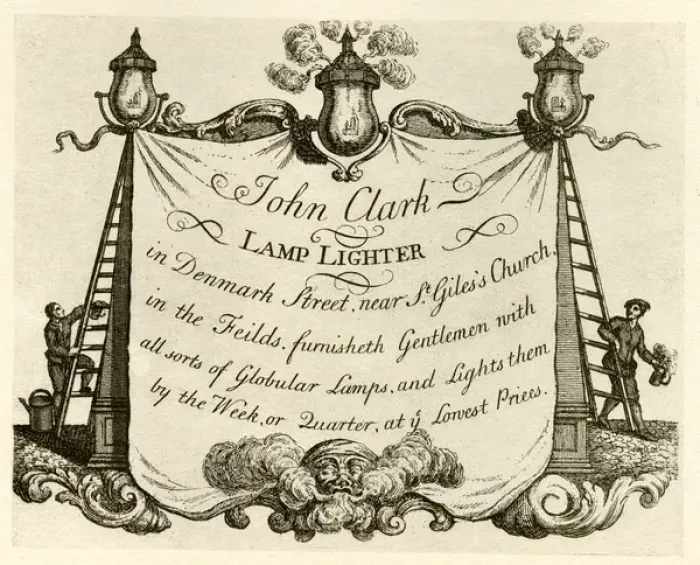 John Clark
LAMP LIGHTER
in Denmark Street, near St. Giles's Church,
in the Feilds. furnisheth Gentlemen with
all sorts of Globular Lamps, and Lights them
by the Week, or Quarter, at ye Lowest Prices.